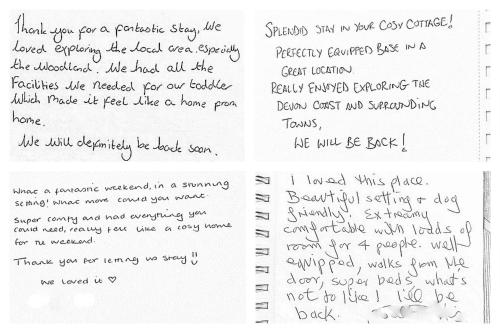 Thank you for a fantastic stay, We
loved exploring the local area, especially
the Woodland. We had all the
Facilities We needed for our toddler
Which made it feel like a home from
home.
We will definitely be back soon.
SPLENDID STAY IN YOUR COSY COTTAGE!
PERFECTLY EQUIPPED BASE IN A
GREAT LOCATION
REALLY ENJOYED EXPLORING THE
DEVON COAST AND SURROUNDING
TOWNS,
WE WILL BE BACK!
What a fantastic weekend, in a stunning
setting! What more could you want
Super comfy and had everything you
could need, really felt like a cosy home
for the weekend.
Thank you for letting us stay!!
We loved it ♡
I loved this place.
Beautiful setting & dog
friendly. Extremely
comfortable with loads of
room for 4 people. well
equipped, walks from the
door, super beds, what's
not to like! I'll be
back.